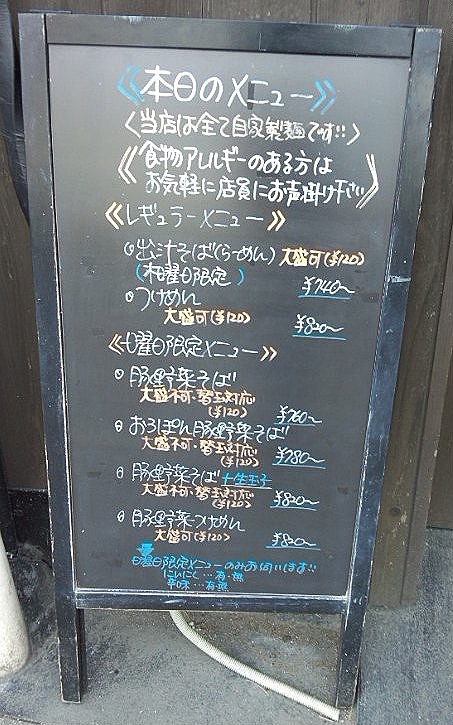 《本日のメニュー》
〈当店は全て自家製麺です!!〉
《食物アレルギーのある方は
お気軽に店員にお声掛け下さい》
《レギュラーメニュー》
・出汁そば(らーめん) 大盛可(¥120)
(木曜日限定) ¥740〜
・つけめん
大盛可(¥120) ¥820〜
《曜日限定メニュー》
・豚野菜そば
大盛不可・替玉対応
(¥120) ¥760〜
・おろぽん豚野菜そば
大盛不可・替玉対応
(¥120) ¥780〜
・豚野菜そば+生玉子
大盛不可・替玉対応
(¥120) ¥820〜
・豚野菜つけめん
大盛可(¥120) ¥820〜
曜日限定メニューのみお伺います!!
にんにく…有・無
辛味…有・無